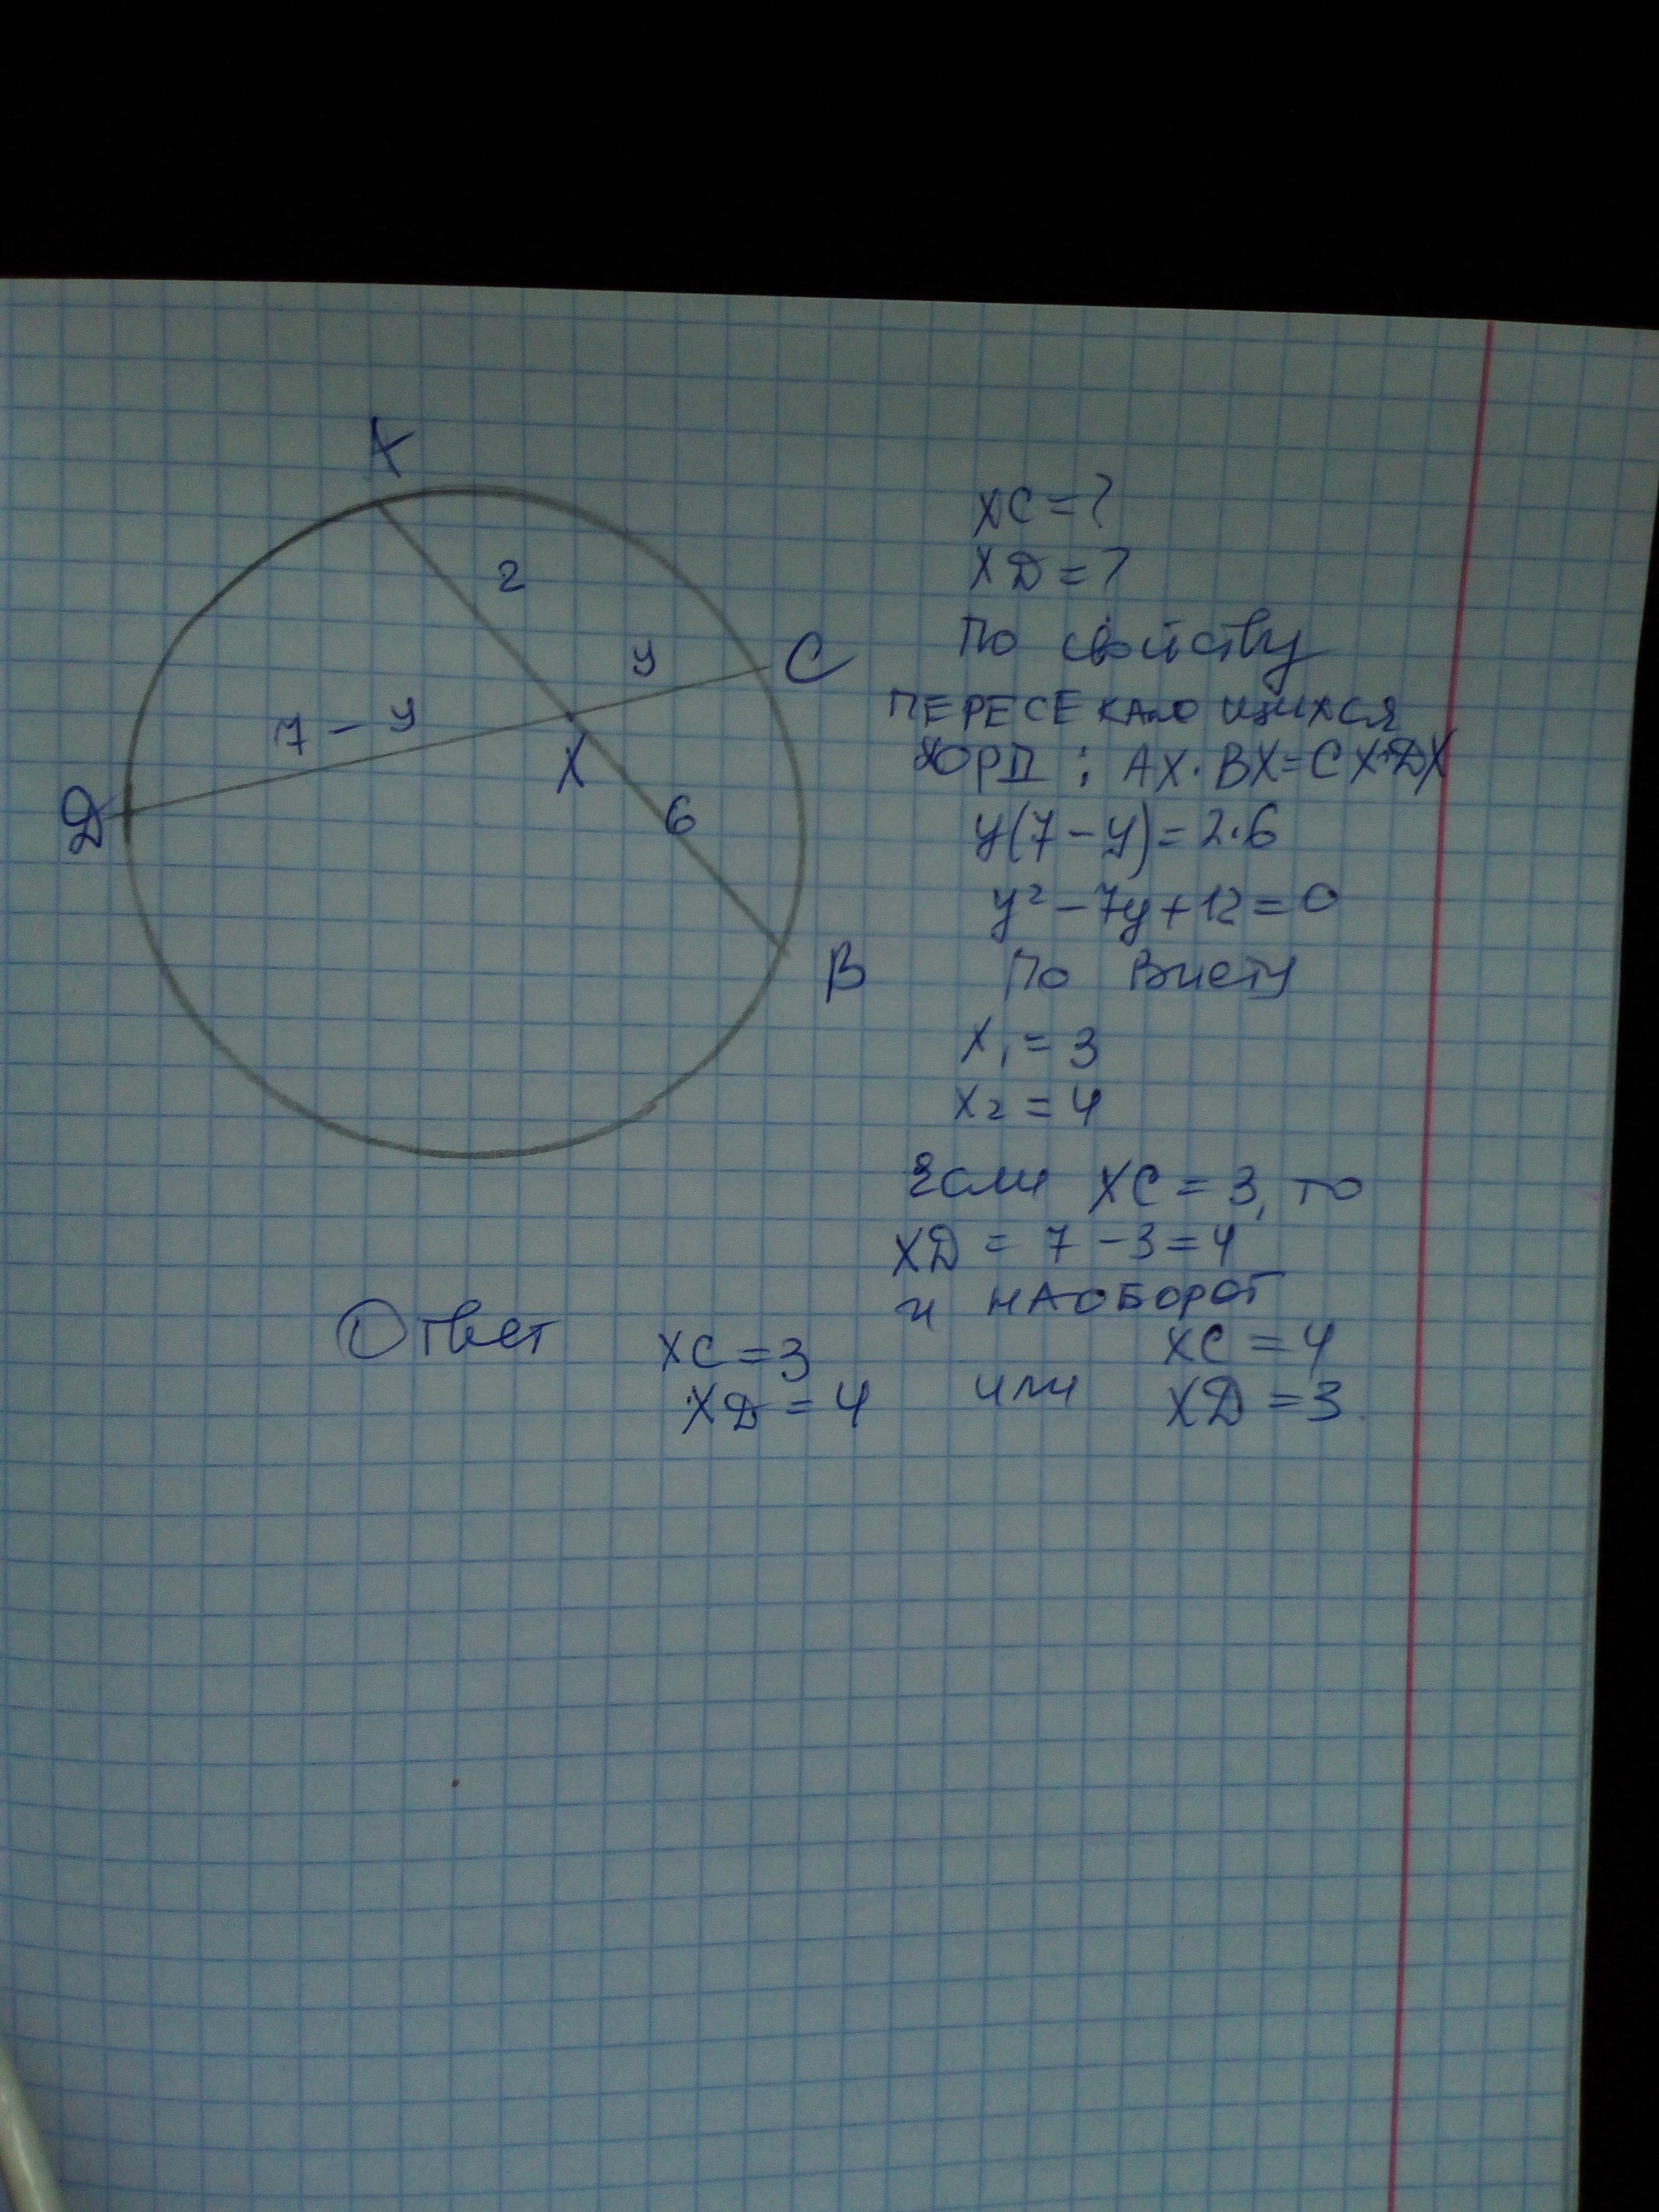 A
2
y
C
7 - y
X
D
6
B
XC = ?
XD = ?
По свойству
ПЕРЕСЕКАЮЩИХСЯ
ХОРД : AX · BX = CX · DX
y(7 - y) = 2 · 6
y² - 7y + 12 = 0
По Виету
x₁ = 3
x₂ = 4
Если XC = 3, то
XD = 7 - 3 = 4
и НАОБОРОТ
Ответ XC = 3 XC = 4
XD = 4 или XD = 3.